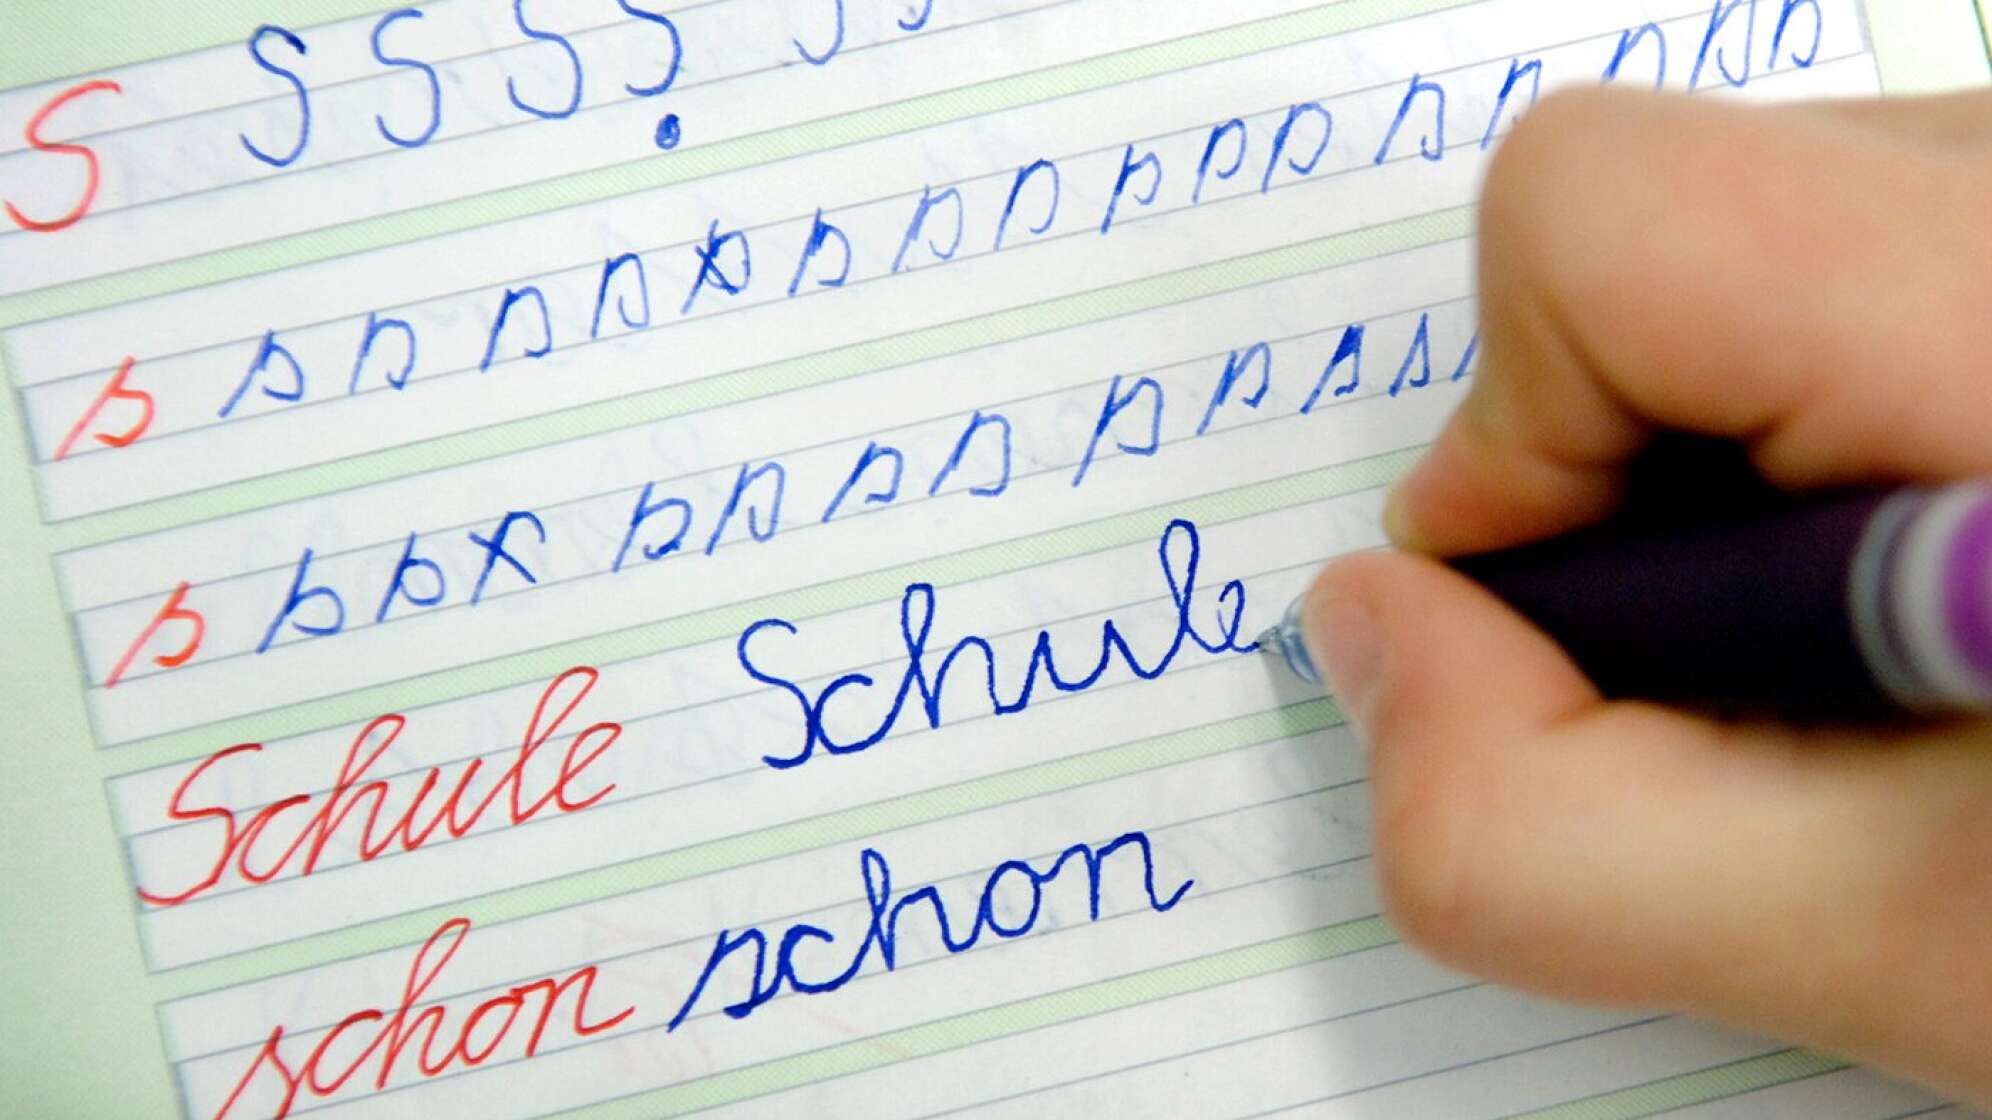 S S S S S S S
s s s s s s s s s s s s s s s s s
s s s s s s s s s s s s
Schule Schule
schon schon